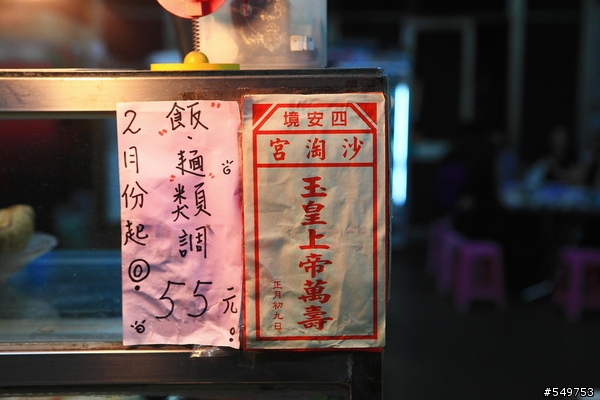 2月份起
飯、麵類調
55元
四安境
沙淘宮
玉皇上帝萬壽
正月初九日
#549753